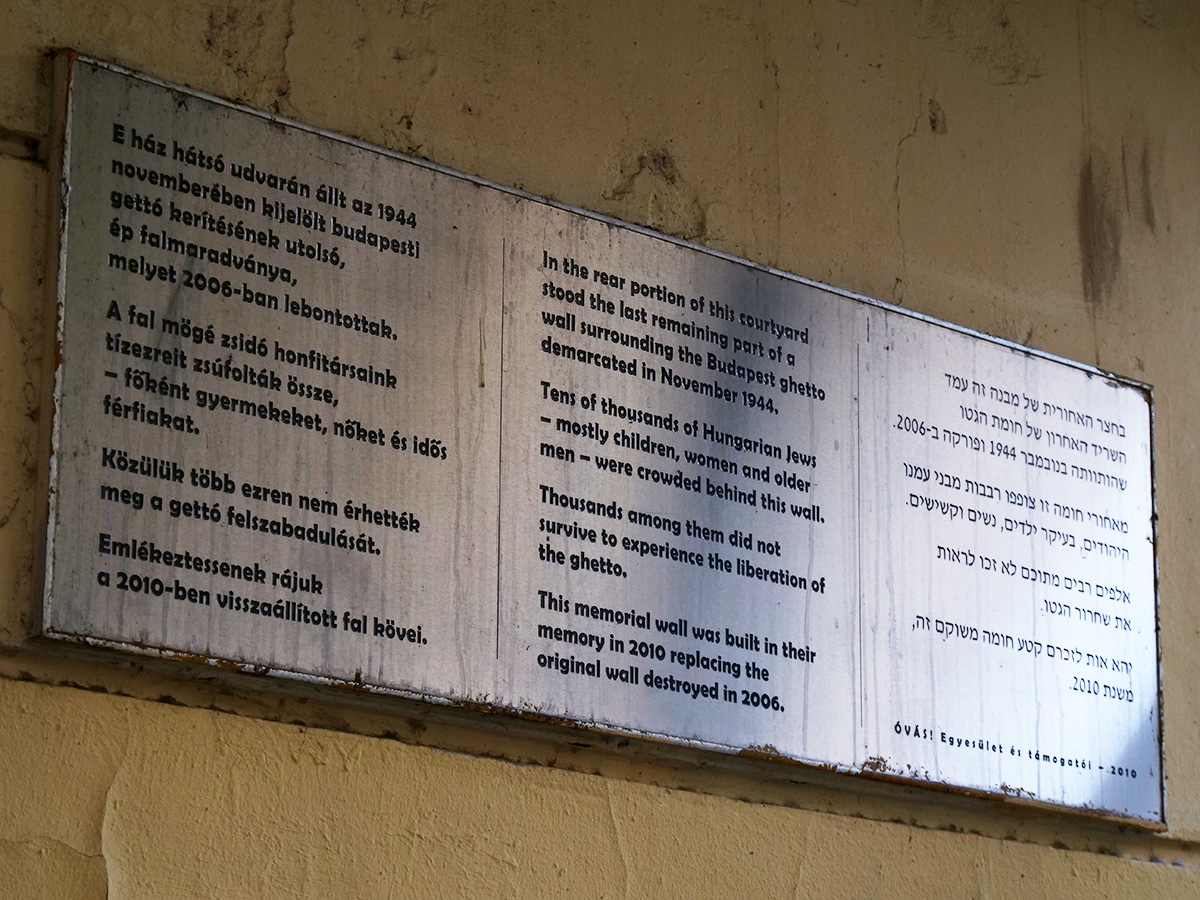 E ház hátsó udvarán állt az 1944
novemberében kijelölt budapesti
gettó kerítésének utolsó,
ép falmaradványa,
melyet 2006-ban lebontottak.
A fal mögé zsidó honfitársaink
tízezreit zsúfolták össze,
– főként gyermekeket, nőket és idős
férfiakat.
Közülük több ezren nem érhették
meg a gettó felszabadulását.
Emlékeztessenek rájuk
a 2010-ben visszaállított fal kövei.
In the rear portion of this courtyard
stood the last remaining part of a
wall surrounding the Budapest ghetto
demarcated in November 1944.
Tens of thousands of Hungarian Jews
– mostly children, women and older
men – were crowded behind this wall.
Thousands among them did not
survive to experience the liberation of
the ghetto.
This memorial wall was built in their
memory in 2010 replacing the
original wall destroyed in 2006.
בחצר האחורית של מבנה זה עמד
השריד האחרון של חומת הגטו
שהותוותה בנובמבר 1944 ופורקה ב-2006.
מאחורי חומה זו צופפו רבבות מבני עמנו
היהודים, בעיקר ילדים, נשים וקשישים.
אלפים רבים מתוכם לא זכו לראות
את שחרור הגטו.
יהא אות לזכרם קטע חומה משוקם זה,
משנת 2010.
ÓVÁS! Egyesület és támogatói – 2010